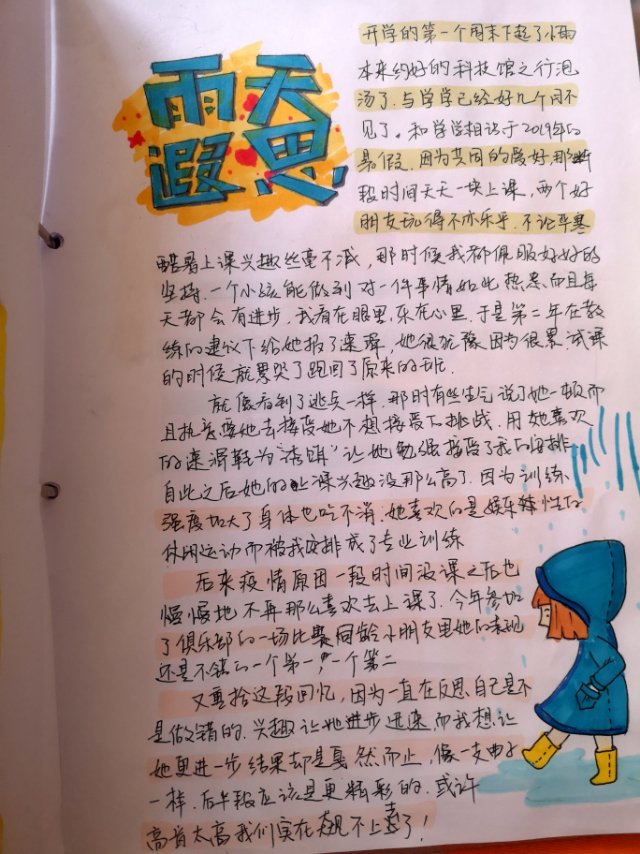 雨天
遐思
开学的第一个周末下起了小雨
本来约好的科技馆之行泡
汤了.与学学已经好几个月不
见了。和学学相识于2019年的
暑假.因为共同的爱好,那
段时间天天一块上课,两个好
朋友玩得不亦乐乎.不论严寒
酷暑上课兴趣丝毫不减,那时候我都佩服好好的
坚持.一个小孩能做到对一件事情如此热爱而且每
天都会有进步.我看在眼里.乐在心里.于是第二年在教
练的建议下给她报了速降,她很犹豫.因为很累.试课
的时候就累哭了跑回了原来的班.
就像看到了逃兵一样.那时有些生气说了她一顿而
且执意要她去接受她不想接受的挑战.用她喜欢
的速滑鞋为"诱饵"让她勉强接受了我的安排
自此之后她的上课兴趣没那么高了.因为训练
强度加大了身体也吃不消.她喜欢的是娱乐性的
休闲运动而被我安排成了专业训练
后来疫情原因一段时间没课之后也
慢慢地不再那么喜欢去上课了.今年参加
了俱乐部的一场比赛同龄小朋友里她的表现
还是不错的一个第一,一个第二
又重拾这段回忆,因为一直在反思自己是不
是做错的.兴趣让她进步迅速而我想让
她更进一步结果却是戛然而止,像一支曲子
一样.后半段应该是更精彩的.或许
高音太高我们实在飙不上去了!